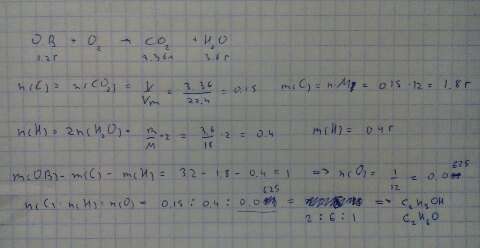 ОВ + O₂ → CO₂ + H₂O
3.2г 3.36л 3.6г
n(C) = n(CO₂) = V/Vm = 3,36/22,4 = 0.15 m(C) = n·M = 0.15·12 = 1,8г
n(H) = 2n(H₂O) = m/M·2 = 3,6/18·2 = 0.4 m(H) = 0.4г
m(OB) - m(C) - m(H) = 3.2 - 1,8 - 0.4 = 1 => n(O) = 1/12 = 0,0625
n(C) : n(H) : n(O) = 0,15 : 0,4 : 0,0625 = 2:6:1 => C₂H₅OH
C₂H₆O